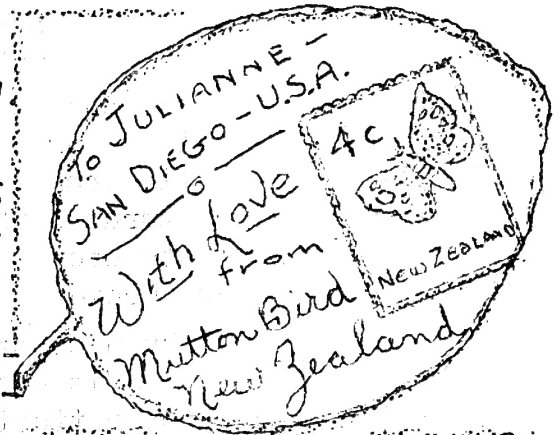 To JULIANNE -
SAN DIEGO - U.S.A.
With Love
from
Mutton Bird
New Zealand
4c
NEW ZEALAND